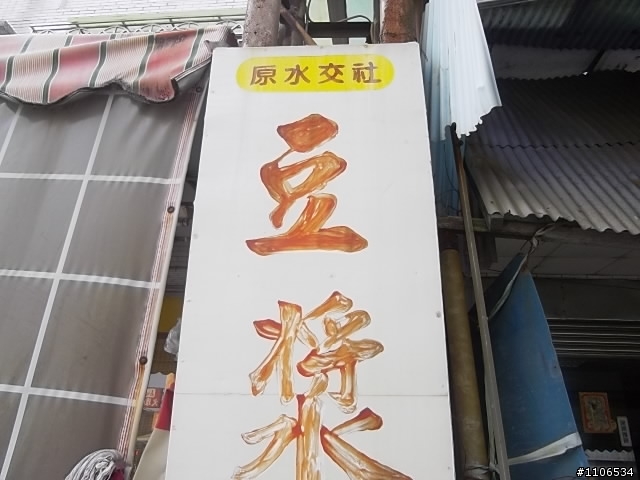 原水交社
豆
漿
#1106534